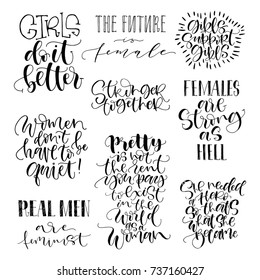 GIRLS
do it
better
THE FUTURE
is
female
Girls
Support
Girls
Stronger
together
FEMALES
are
strong
as
HELL
Women
don't
have to be
quiet!
Pretty
is not
the rent
you pay
to exist
in the
world
as a
woman
REAL MEN
are
feminist
She needed
a Hero
so that's
what she
became
www.shutterstock.com · 737160427